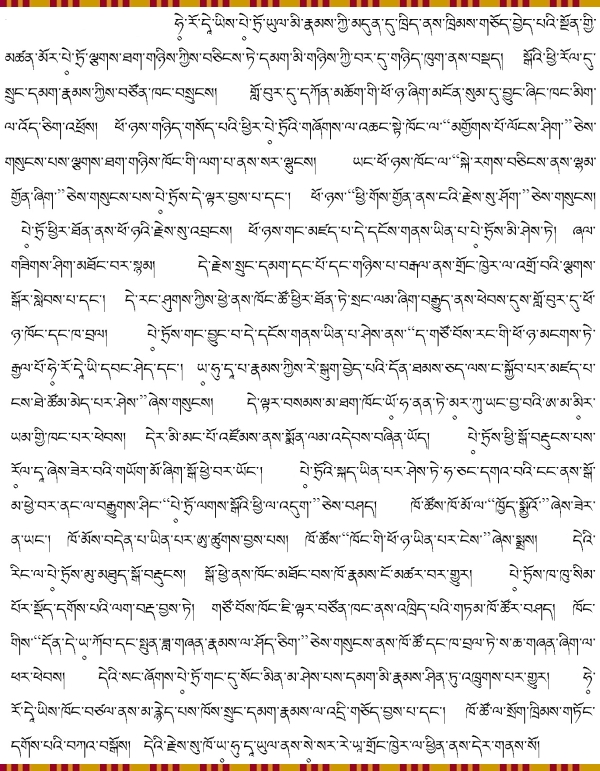 ཧེ་རོ་ད྄ེ་ཡིས་པེ་ཏྲོ་ཡུལ་མི་རྣམས་ཀྱི་མདུན་དུ་ཁྲིད་ནས་ཁྲིམས་གཅོད་བྱེད་པའི་སྔོན་གྱི་
མཚན་མོར་པེ་ཏྲོ་ལྕགས་ཐག་གཉིས་ཀྱིས་བཅིངས་ཏེ་དམག་མི་གཉིས་ཀྱི་བར་དུ་གཉིད་ཁུག་ནས་བསྡད། སྒོའི་ཕྱི་རོལ་དུ་
སྲུང་དམག་རྣམས་ཀྱིས་བཙོན་ཁང་བསྲུངས། གློ་བུར་དུ་དཀོན་མཆོག་གི་ཕོ་ཉ་ཞིག་མངོན་སུམ་དུ་བྱུང་ཞིང་ཁང་མིག་
ལ་འོད་ཅིག་འཕྲོས། ཕོ་ཉས་གཉིད་གསོད་པའི་ཕྱིར་པེ་ཏྲོའི་གཞོགས་ལ་འཆང་སྟེ་ཁོང་ལ་“མགྱོགས་པོ་ལོངས་ཤིག་”ཅེས་
གསུངས་པས་ལྕགས་ཐག་གཉིས་ཁོང་གི་ལག་པ་ནས་སར་ལྷུངས། ཡང་ཕོ་ཉས་ཁོང་ལ་“སྐེ་རགས་བཅིངས་ནས་ལྷམ་
གྱོན་ཞིག་”ཅེས་གསུངས་པས་པེ་ཏྲོས་དེ་ལྟར་བྱས་པ་དང་། ཕོ་ཉས་“ཕྱི་གོས་གྱོན་ནས་ངའི་རྗེས་སུ་ཤོག་”ཅེས་གསུངས།
པེ་ཏྲོ་ཕྱིར་ཐོན་ནས་ཕོ་ཉའི་རྗེས་སུ་འབྲངས། ཕོ་ཉས་གང་མཛད་པ་དེ་དངོས་གནས་ཡིན་པ་པེ་ཏྲོས་མི་ཤེས་ཏེ། ཞལ་
གཟིགས་ཤིག་མཐོང་བར་སྙམ། དེ་རྗེས་སྲུང་དམག་དང་པོ་དང་གཉིས་པ་བརྒལ་ནས་གྲོང་ཁྱེར་ལ་འགྲོ་བའི་ལྕགས་
སྒོར་སླེབས་པ་དང་། དེ་རང་ཤུགས་ཀྱིས་ཕྱེ་ནས་ཁོང་ཚོ་ཕྱིར་ཐོན་ཏེ་སྲང་ལམ་ཞིག་བརྒྱུད་ནས་ཕེབས་དུས་གློ་བུར་དུ་ཕོ་
ཉ་ཁོང་དང་ཁ་བྲལ། པེ་ཏྲོས་གང་བྱུང་བ་དེ་དངོས་གནས་ཡིན་པ་ཤེས་ནས་“ད་གཙོ་བོས་རང་གི་ཕོ་ཉ་མངགས་ཏེ་
རྒྱལ་པོ་ཧེ་རོ་ད྄ེ་ཡི་དབང་ཤེད་དང་། ཡ་ཧུ་དཱ་པ་རྣམས་ཀྱིས་རེ་སྒུག་བྱེད་པའི་དོན་ཐམས་ཅད་ལས་ང་སྐྱོབ་པར་མཛད་པ་
ངས་ཐེ་ཚོམ་མེད་པར་ཤེས་”ཞེས་གསུངས། དེ་ལྟར་བསམས་མ་ཐག་ཁོང་ཡོ་ཧ་ནན་ཏེ་མར་ཀུ་ཡང་བྱ་བའི་ཨ་མ་མིར་
ཡམ་གྱི་ཁང་པར་ཕེབས། དེར་མི་མང་པོ་འཛོམས་ནས་སྨོན་ལམ་འདེབས་བཞིན་ཡོད། པེ་ཏྲོས་ཕྱི་སྒོ་བརྡུངས་པས་
རོལ་དཱ་ཞེས་ཟེར་བའི་གཡོག་མོ་ཞིག་སྒོ་ཕྱེ་བར་ཡོང་། པེ་ཏྲོའི་སྐད་ཡིན་པར་ཤེས་ཏེ་ཧ་ཅང་དགའ་བའི་ངང་ནས་སྒོ་
མ་ཕྱེ་བར་ནང་ལ་བརྒྱུགས་ཤིང་“པེ་ཏྲོ་ལགས་སྒོའི་ཕྱི་ལ་འདུག་”ཅེས་བཤད། ཁོ་ཚོས་ཁོ་མོ་ལ་“ཁྱོད་སྨྱོའོ་”ཞེས་ཟེར་
ན་ཡང་། ཁོ་མོས་བདེན་པ་ཡིན་པར་ཨུ་ཚུགས་བྱས་པས། ཁོ་ཚོས་“ཁོང་གི་ཕོ་ཉ་ཡིན་པར་ངེས་”ཞེས་སྨྲས། དེའི་
རིང་ལ་པེ་ཏྲོས་མུ་མཐུད་སྒོ་བརྡུངས། སྒོ་ཕྱེ་ནས་ཁོང་མཐོང་བས་ཁོ་རྣམས་ངོ་མཚར་བར་གྱུར། པེ་ཏྲོས་ཁ་ཁུ་སིམ་
པོར་སྡོད་དགོས་པའི་ལག་བརྡ་བྱས་ཏེ། གཙོ་བོས་ཁོང་ཇི་ལྟར་བཙོན་ཁང་ནས་འཁྲིད་པའི་གཏམ་ཁོ་ཚོར་བཤད། ཁོང་
གིས་“དོན་དེ་ཡ་ཀོབ་དང་སྤུན་ཟླ་གཞན་རྣམས་ལ་ཤོད་ཅིག་”ཅེས་གསུངས་ནས་ཁོ་ཚོ་དང་ཁ་བྲལ་ཏེ་ས་ཆ་གཞན་ཞིག་ལ་
ཕར་ཕེབས། དེའི་སང་ཞོགས་པེ་ཏྲོ་གང་དུ་སོང་མིན་མ་ཤེས་པས་དམག་མི་རྣམས་ཤིན་ཏུ་འཁྲུགས་པར་གྱུར། ཧེ་
རོ་ད྄ེ་ཡིས་ཁོང་བཙལ་ནས་མ་རྙེད་པས་ཁོས་སྲུང་དམག་རྣམས་ལ་འདྲི་གཅོད་བྱས་པ་དང་། ཁོ་ཚོ་ལ་སྲོག་ཁྲིམས་གཏོང་
དགོས་པའི་བཀའ་བསྒོས། དེའི་རྗེས་སུ་ཁོ་ཡ་ཧུ་དཱ་ཡུལ་ནས་སེ་སར་རེ་ཡཱ་གྲོང་ཁྱེར་ལ་ཕྱིན་ནས་དེར་གནས་སོ།